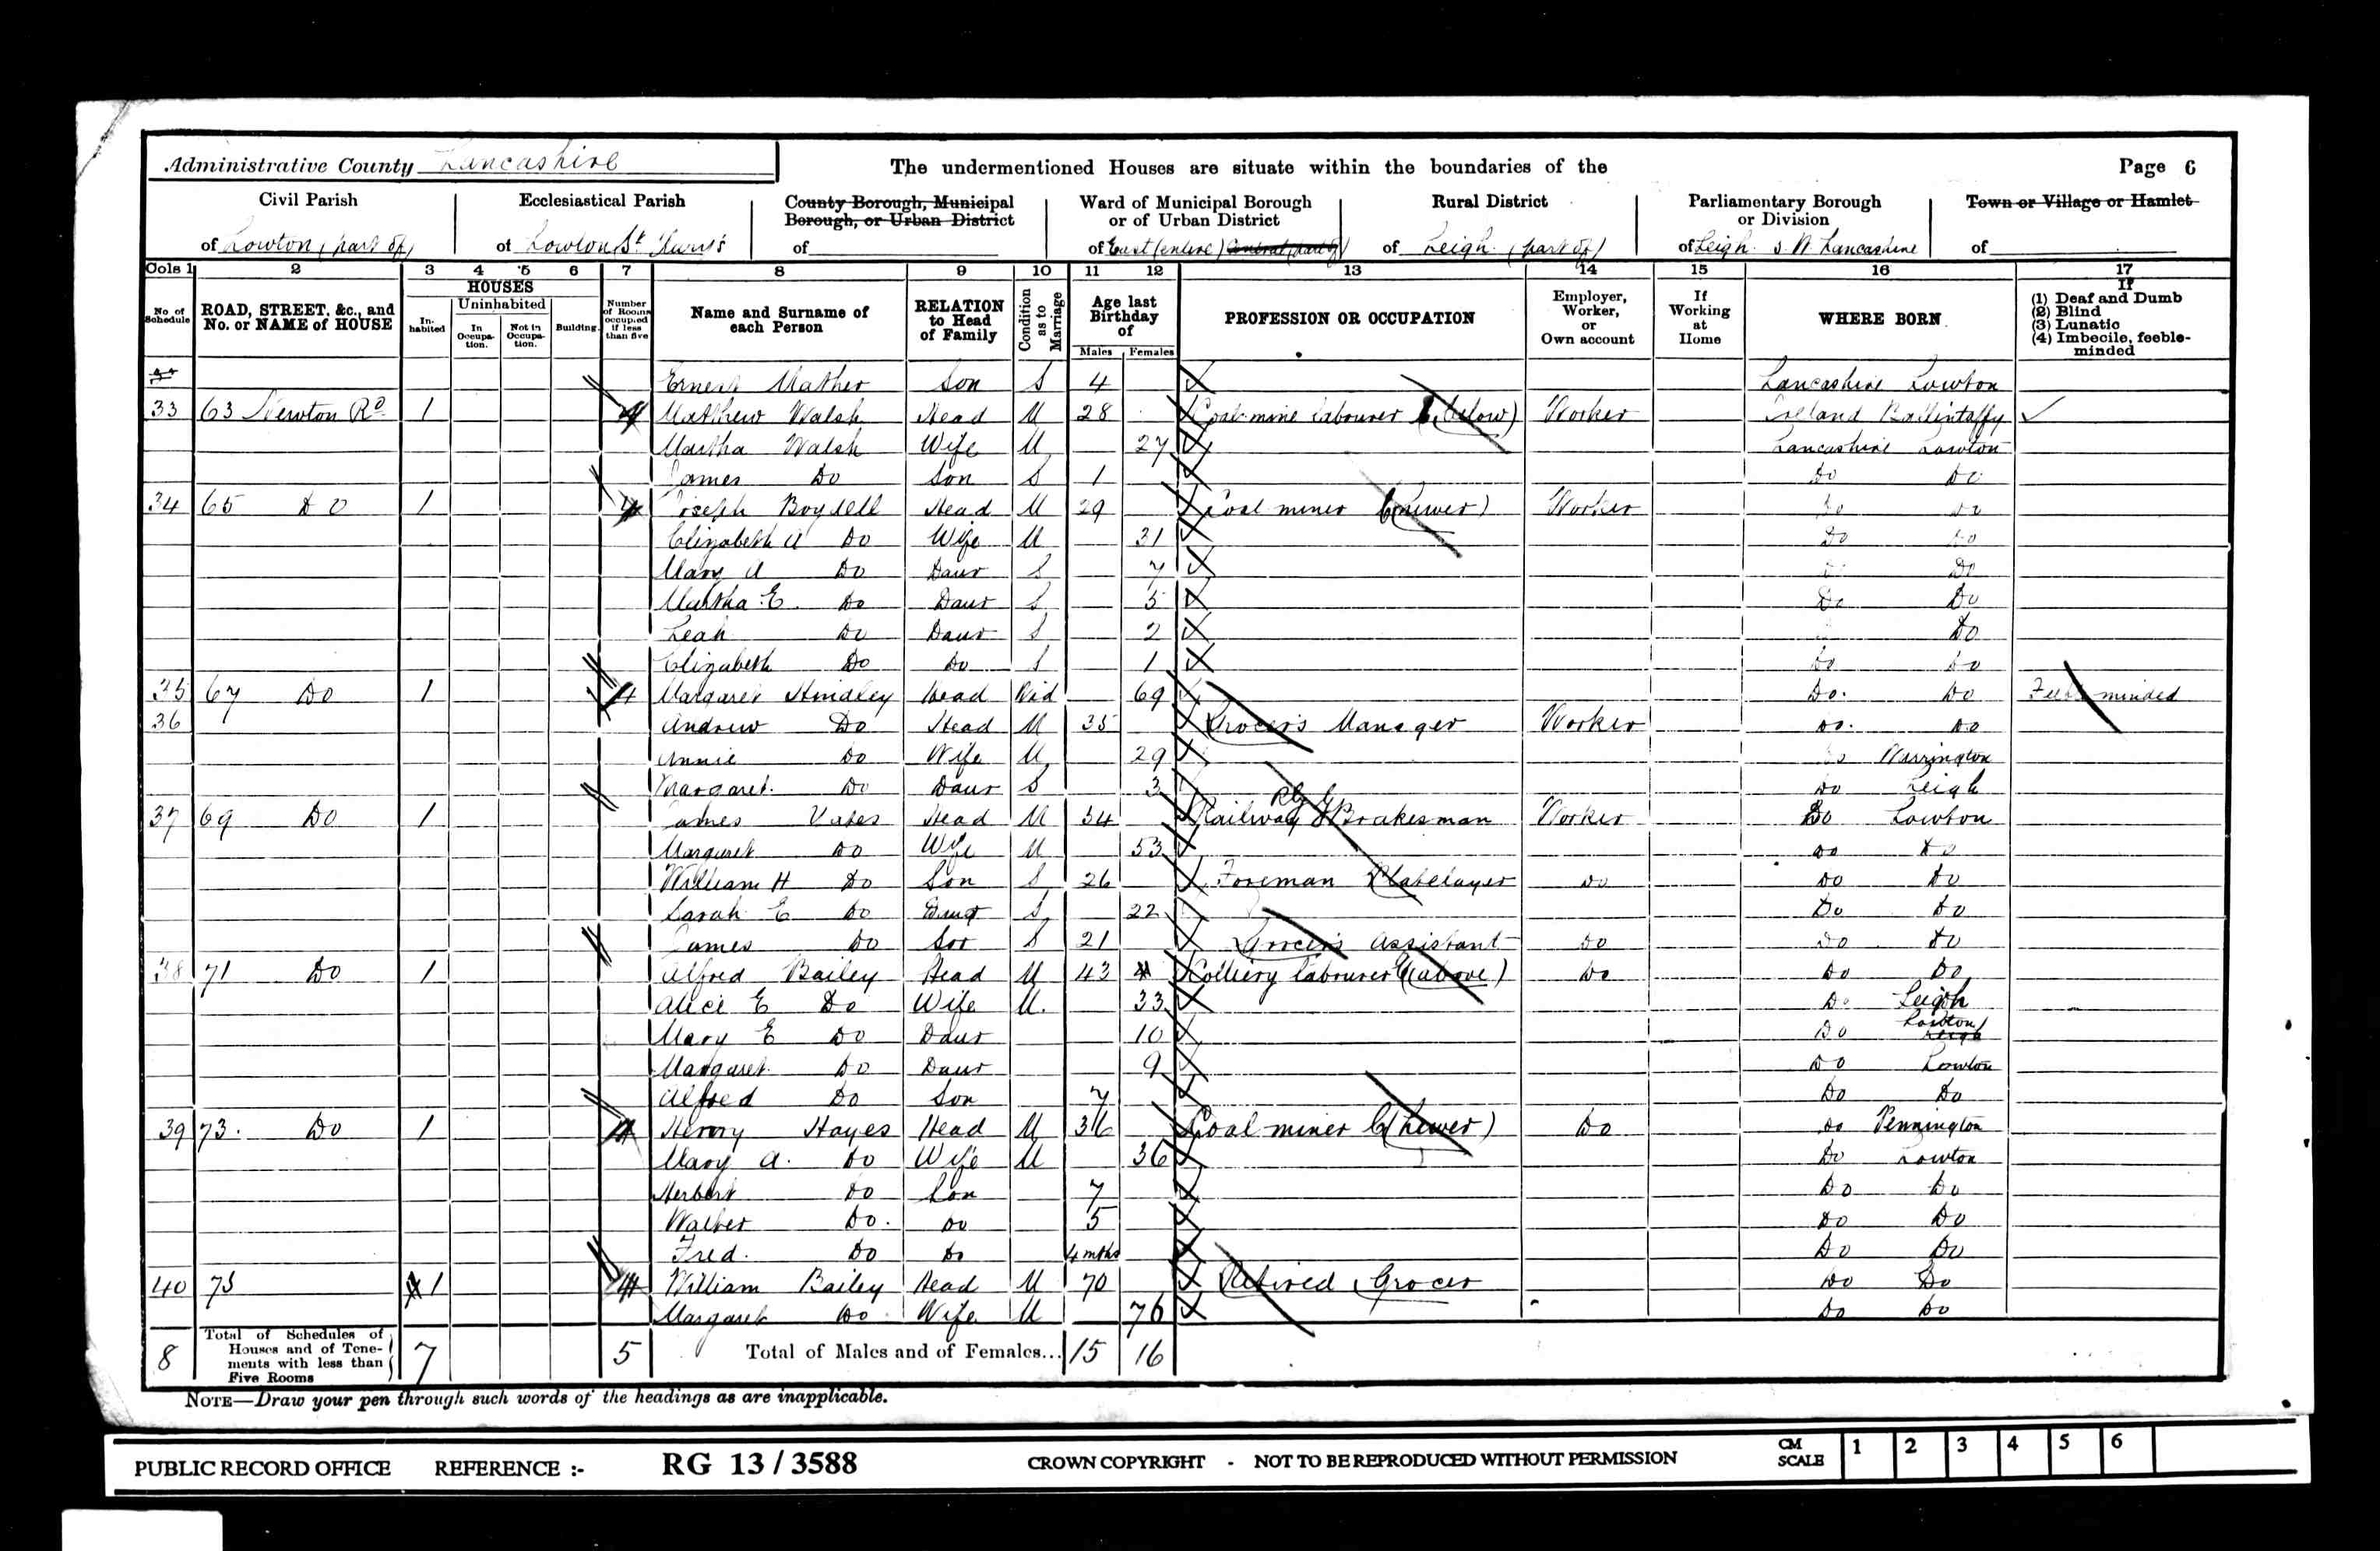 Administrative County Lancashire
The undermentioned Houses are situate within the boundaries of the
Page 6
Civil Parish
of Lowton (part of)
Ecclesiastical Parish
of Lowton St
County Borough, Municipal Borough, or Urban District
of
Ward of Municipal Borough or of Urban District
of East (entire) Central (part of)
Rural District
of Leigh (part of)
Parliamentary Borough or Division
of Leigh S.W. Lancashire
Town or Village or Hamlet
of
Cols 1 2 3 4 5 6 7 8 9 10 11 12 13 14 15 16 17
No of Schedule
ROAD, STREET, &c., and No. or NAME of HOUSE
HOUSES
Inhabited
Uninhabited
In Occupation.
Not in Occupation.
Building.
Number of Rooms occupied if less than five
Name and Surname of each Person
RELATION to Head of Family
Condition as to Marriage
Age last Birthday of
Males Females
PROFESSION OR OCCUPATION
Employer, Worker, or Own account
If Working at Home
WHERE BORN
If
(1) Deaf and Dumb
(2) Blind
(3) Lunatic
(4) Imbecile, feeble-minded
Ernest Mather Son S 4 Lancashire Lowton
33 63 Newton Rd 1 4 Mathew Walsh Head M 28 Coal mine labourer (below) Worker Ireland Ballintaffy
Martha Walsh Wife M 27 Lancashire Lowton
James Do Son S 1 Do Do
34 65 Do 1 4 Joseph Boydell Head M 29 Coal miner (hewer) Worker Do Do
Elizabeth A Do Wife M 31 Do Do
Mary A Do Daur S 7 Do
Martha E. Do Daur S 5 Do Do
Leah Do Daur S 2 Do
Elizabeth Do Do S 1 Do Do
35 67 Do 1 4 Margaret Hindley Head Wid 69 Do. Do Feeble minded
36 Andrew Do Head M 35 Grocer's Manager Worker Do. Do
Annie Do Wife M 29 Do Warrington
Margaret. Do Daur S 3 Do Leigh
37 69 Do 1 James Yates Head M 54 Railway Brakesman Worker Do Lowton
Margaret Do Wife M 53 Do Do
William H Do Son S 26 Foreman Platelayer Do Do Do
Sarah E Do Daur S 22 Do Do
James Do Son S 21 Grocer's assistant Do Do Do
38 71 Do 1 Alfred Bailey Head M 43 Colliery labourer (above) Do Do Do
Alice E Do Wife M. 33 Do Leigh
Mary E Do Daur 10 Do Lowton Leigh
Margaret Do Daur 9 Do Lowton
Alfred Do Son 7 Do Do
39 73. Do 1 4 Henry Hayes Head M 36 Coal miner (hewer) Do Do Pennington
Mary A. Do Wife M 36 Do Lowton
Herbert Do Son 7 Do Do
Walter Do. Do 5 Do Do
Fred. Do Do 4 mths Do Do
40 75 1 4 William Bailey Head M 70 Retired Grocer Do Do
Margaret Do Wife M 76 Do Do
8 Total of Schedules of Houses and of Tenements with less than Five Rooms 7 5 Total of Males and of Females... 15 16
NOTE—Draw your pen through such words of the headings as are inapplicable.
PUBLIC RECORD OFFICE REFERENCE :- RG 13 / 3588 CROWN COPYRIGHT - NOT TO BE REPRODUCED WITHOUT PERMISSION CM SCALE 1 2 3 4 5 6